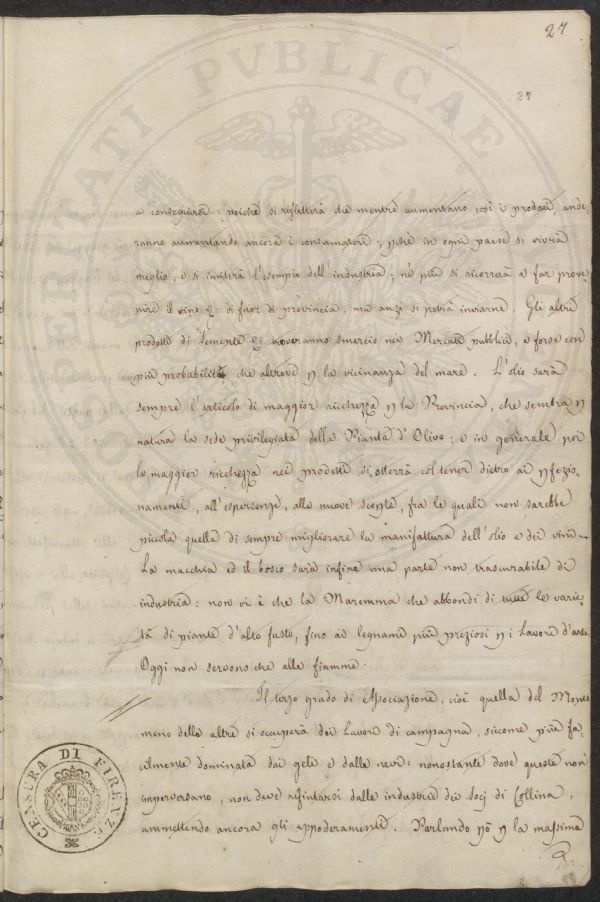 27
27
a conseguirsi: poichè si rifletterà che mentre aumentano così i prodotti, ande-
ranno aumentando ancora i consumatori, pchè in ogni paese si vivrà
meglio, e si imiterà l'esempio dell'industria; nè più si ricorrerà a far prove-
nire il vino &: di fuor di provincia, ma anzi si potrà inviarne. Gli altri
prodotti di Sementi &: troveranno smercio nei Mercati pubblici, e forse con
più probabilità che altrove p la vicinanza del mare. L'olio sarà
sempre l'articolo di maggior ricchezza p la Provincia, che sembra p
natura la sede privilegiata della Pianta d'Olivo; e in generale poi
la maggior ricchezza nei prodotti si otterrà col tener dietro ai pfezio-
namenti, all'esperienze, alle nuove scoperte, fra le quali non sarebbe
piccola quella di sempre migliorare la manifattura dell'olio e dei vini.
La macchia ed il bosco sarà infine una parte non trascurabile di
industria: non vi è che la Maremma che abbondi di tutte le varie-
tà di piante d'alto fusto, fino ai legnami più preziosi p i Lavori d'arte
Oggi non servono che alle fiamme.
Il terzo grado di Associazione, cioè quella del Monte
meno delle altre si occuperà dei Lavori di campagna, siccome più fa-
cilmente dominata dai geli e dalle nevi: nonostante dove queste non
imperversano, non deve rifiutarsi dalle industrie dei Socj di Collina,
ammettendo ancora gli appoderamenti. Parlando pò p la massima
CENSURA DI FIRENZE
PROSPERITATI PVBLICAE